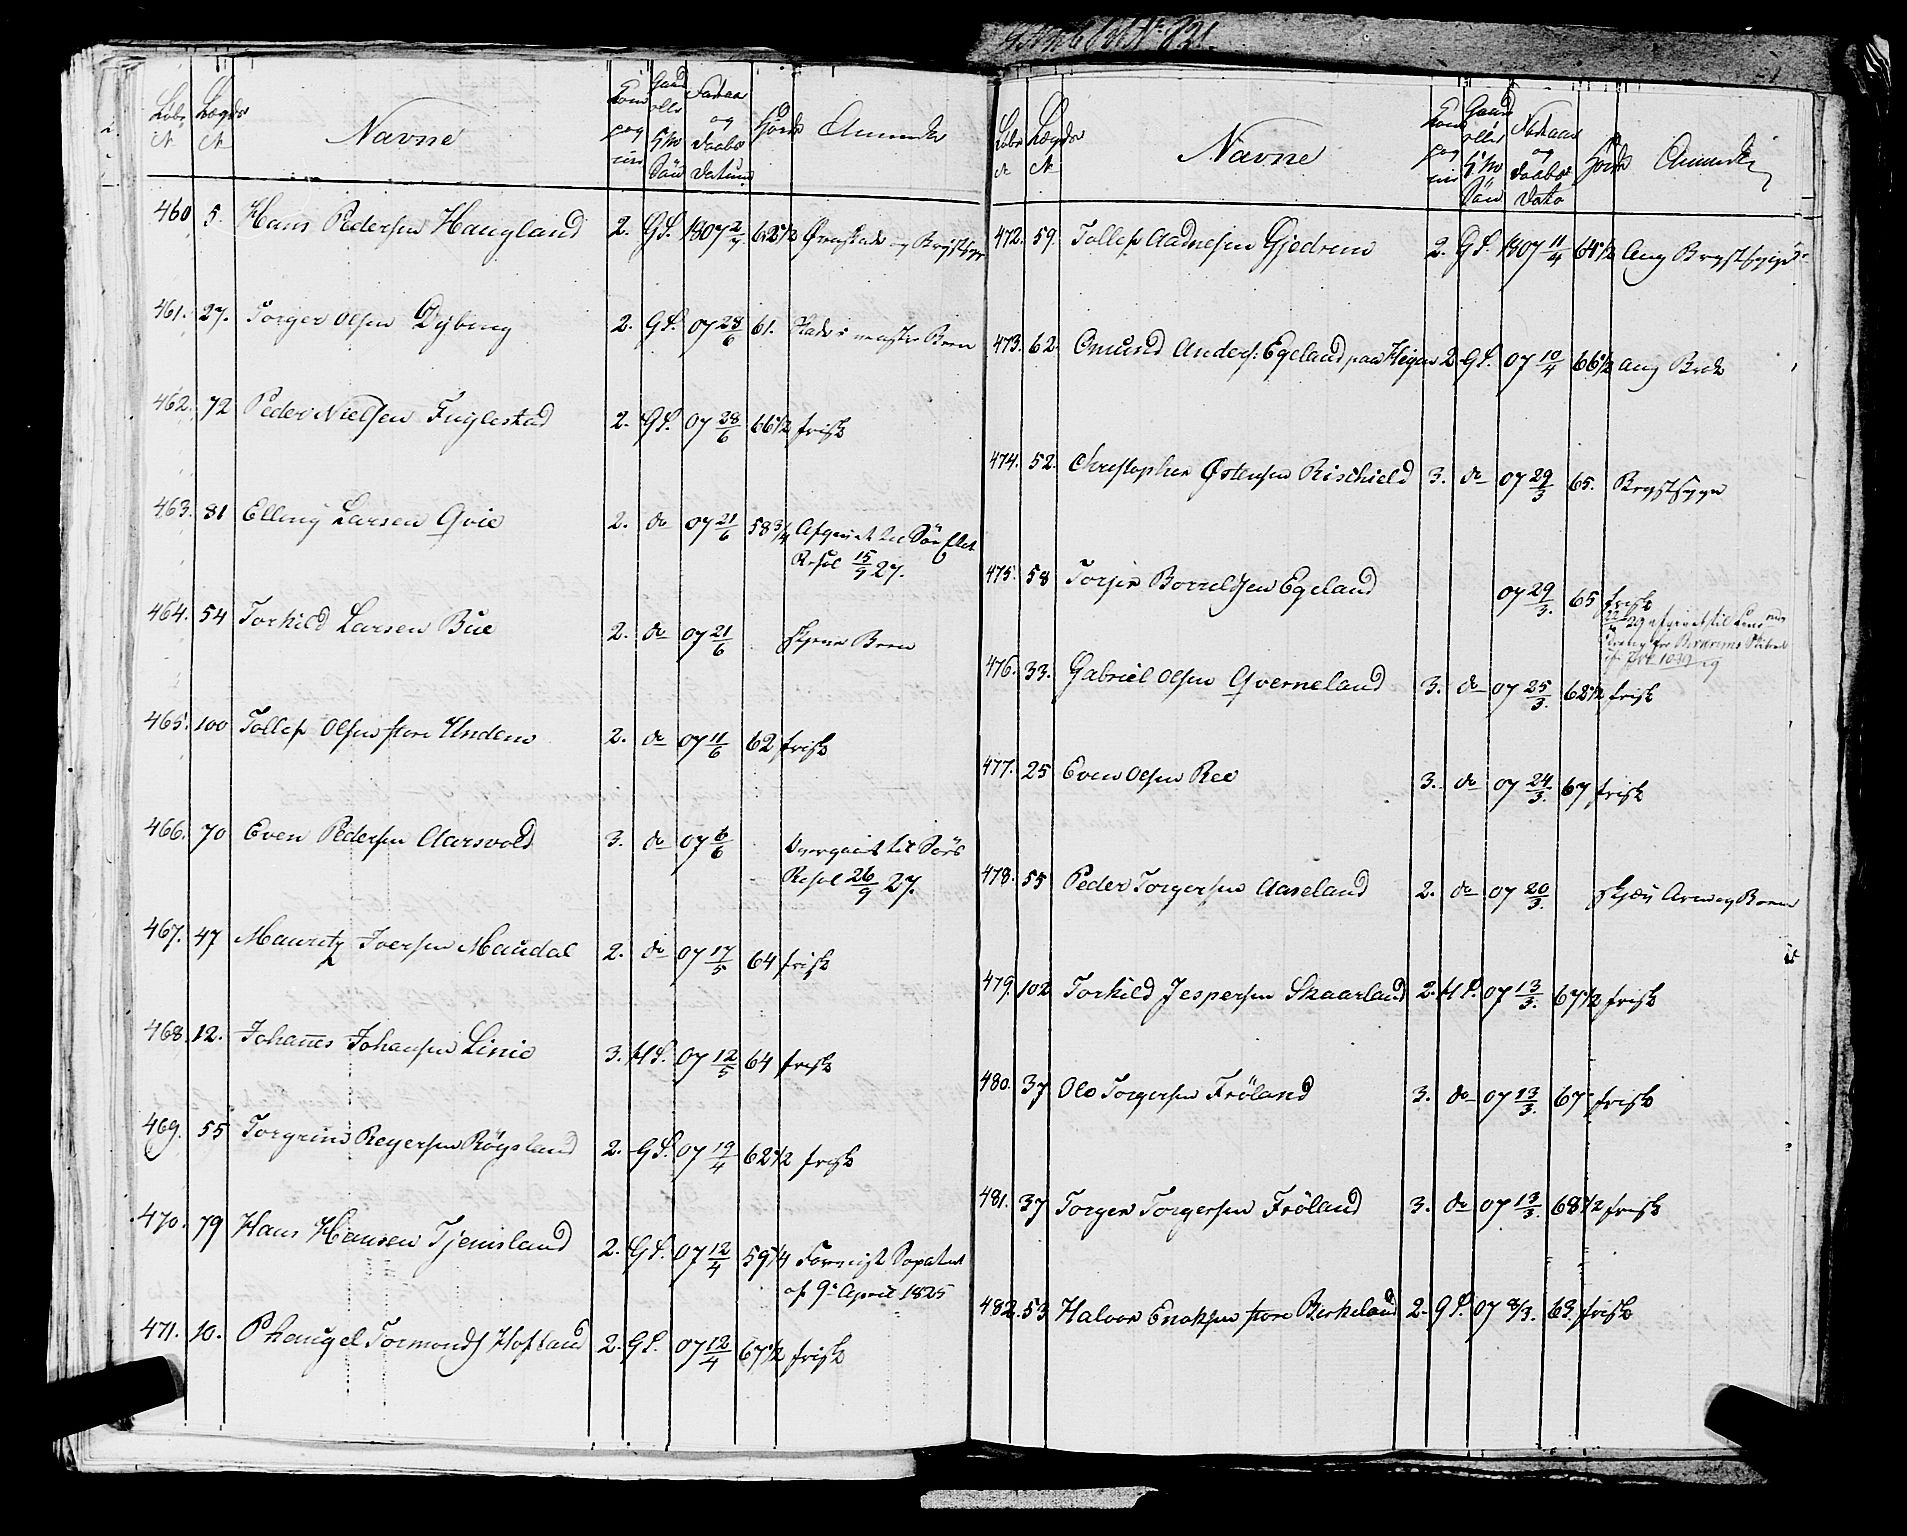 Löbe N Lægds N Navne Kompagnie Gaard eller H.M. Sön Fødsels og Daabs Datum Høide Anmerk
460 5. Hans Pedersen Haugland 2. GS. 1807 2/7 62 1/2
461. 27. Torger Olsen Dybing 2. GS. 07 28/6 61.
462. 72 Peder Nielsen Fuglestad 2. GS. 07 28/6 66 1/2 frisk
463. 81 Elling Larsen Qvie 2. do 07 21/6 58 3/4 Afgivet til Söe Etat
Resol 15/9 27.
464. 54 Torkild Larsen Bue 2. do 07 21/6 Been
465. 100 Tollef Olsen store Undem 2. do 07 11/6 62 frisk
466. 70 Even Pedersen Aarsvold 3. do 07 6/6 overgaaet til Söe
Resol 26/9 27.
467. 47 Mauritz Iversen Maudal 2. do 07 17/5 64 frisk
468. 12. Johannes Johansen Linie 3. HS. 07 12/5 64 frisk
469. 55 Torgrim Reyersen Röysland 2. GS. 07 19/4 62 1/2 frisk
470. 79 Hans Hansen Tjemsland 2. GS. 07 12/4 59 1/4
af 9de April 1825
471. 10. Phaugel Tormods Hofland 2. GS. 07 12/4 67 1/2 frisk
Löbe N Lægds N Navne Kompagnie Gaard eller H.M. Sön og Daabs Dato Høide Anmerk
472. 59. Tollef Aadnesen Gjedrem 2. GS. 1807 11/4 64 1/2 ang Brystsyge
473. 62. Omund Anders: Egeland paa Hegen 2 GS. 07 10/4 66 1/2 ang Brok
474. 52. Christopher Östensen Rischield 3. do 07 29/3 65. Brystsyge
475. 58 Torjer Borrelsen Egeland 07 29/3. 65 frisk
476. 33. Gabriel Olsen Qverneland 3. do 07 25/3. 62 1/2 frisk
477. 25 Even Olsen Ree 3. do 07 24/3. 67 frisk
478. 55 Peder Torgersen Aaseland 2. do 07 20/3. Arm og Been
479. 102 Torkild Jespersen Skaarland 2. HS. 07 13/3. 67 1/2 frisk
480. 37 Ole Torgersen Fröland 3. do 07 13/3. 67 frisk
481. 37 Torger Torgersen Fröland 3. do 07 13/3. 68 1/2 frisk
482. 53 Halvor Enoksen store Berkeland 2. GS. 07 8/3. 63. frisk